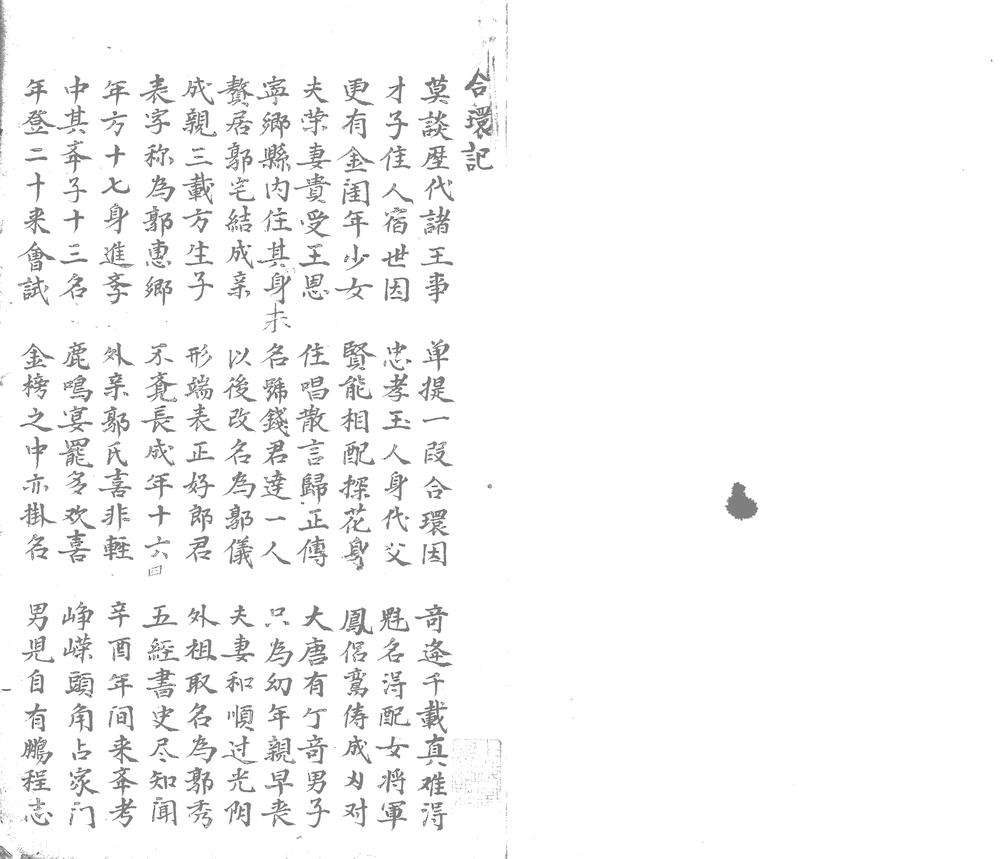 合環記
莫談歷代諸王事 单提一叚合環因 竒逢千載真难得
才子佳人宿世因 忠孝玉人身代父 魁名淂配女将軍
更有金闺年少女 賢能相配探花身 鳳侣鸞俦成刄对
夫荣妻貴受王恩 住唱散言歸正傳 大唐有个竒男子
寕鄉縣内住其身 未名號錢君達一人 只為幼年親早丧
贅居郭宅結成亲 以後改名為郭儀 夫妻和順过光阴
成親三載方生子 形端表正好郎君 外祖取名為郭秀
表字称為郭惠鄉 不覔長成年十六 五經書史尽知闻
年方十七身進斈 外亲郭氏喜非輕 辛酉年间来斈考
中其斈子十三名 鹿鳴宴罷多欢喜 峥嵘頭角占家门
年登二十来會試 金榜之中亦掛名 男児自有鵬程志